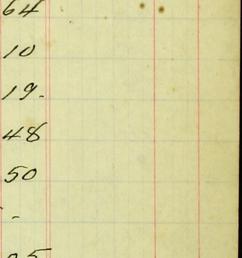 64
10
19.
48
50
-